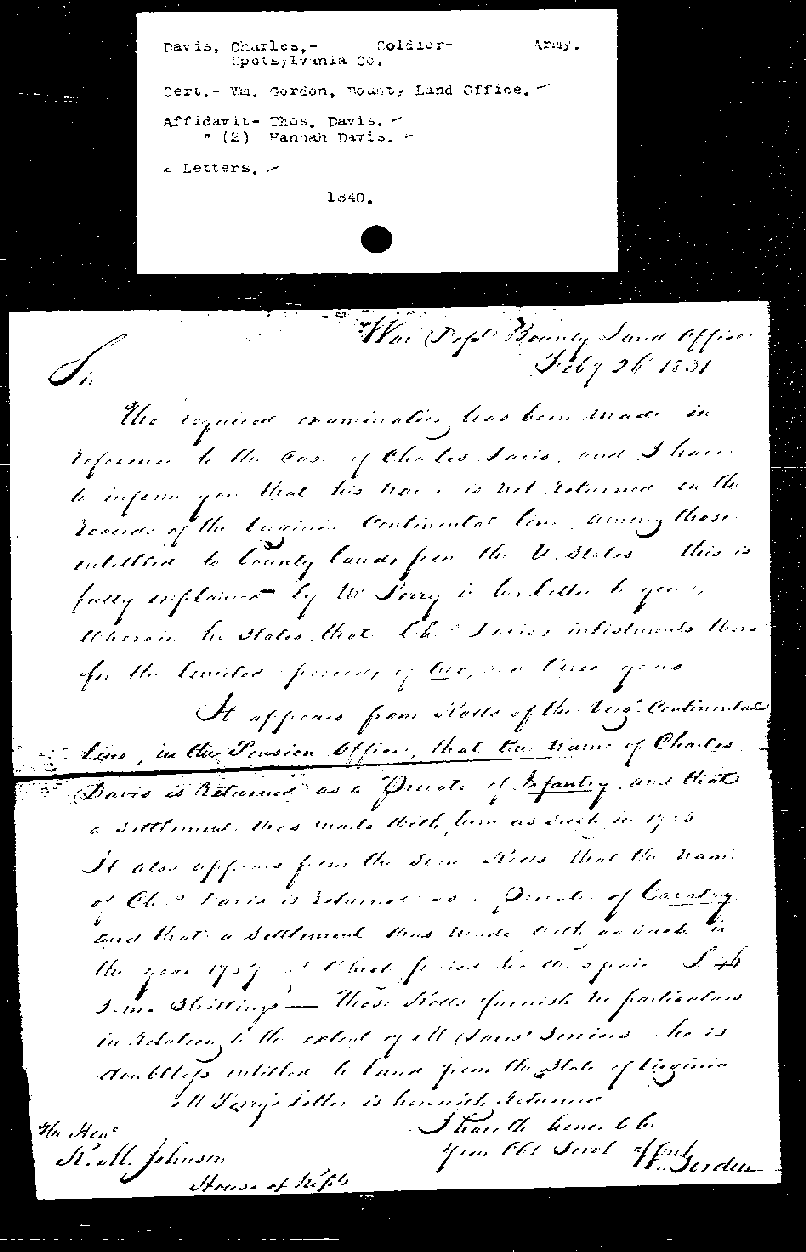 Davis, Charles,- Soldier- Army.
Spotsylvania Co.
Cert.- Wm. Gordon, Bounty Land Office.
Affidavit- Thos. Davis.
" (2) Hannah Davis.
2 Letters.
1840.
War Dept Bounty Land Office
Feby 26 1831
Sir
The required examination has been made in
reference to the case of Charles Davis, and I have
to inform you that his name is not returned on the
Records of the Virginia Continental line, among those
entitled to bounty lands from the U. States this is
fully explained by Mr Perry in his letter to you,
wherein he states that Chs Davis' inlistments were
for the limited periods, of two, and three years
It appears from Rolls of the Virga Continental
line, in the Pension Office, that the name of Charles
Davis is Returned as a Private of Infantry and that
a settlement was made with him as such in 1783
It also appears from the same Rolls that the name
of Chs Davis is returned as a Private of Cavalry
and that a settlement was made with as such in
the year
Some Shillings - These Rolls furnish no particulars
in relation to the extent of Mr Davis' Services he is
doubtless entitled to land from the State of Virginia
Mr Perry's letter is herewith returned
I have the honor to be
Your Obt Servt
Wm Gordon
The Honl
R. M. Johnson
House of Reps